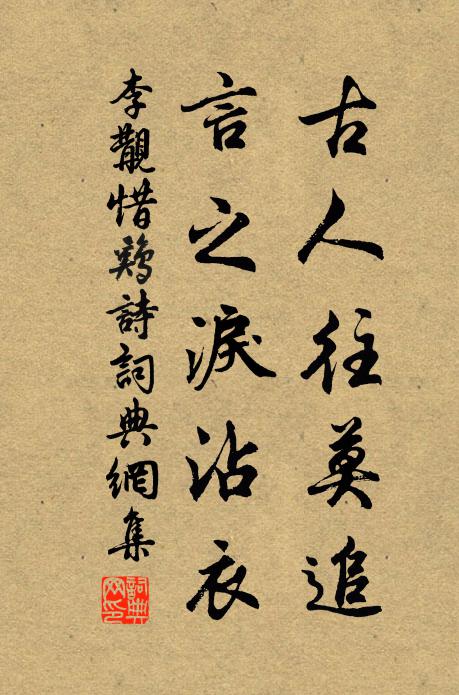 古人往莫追
言之淚沾衣
李觀惜鷄詩詞典網集
詞典網印